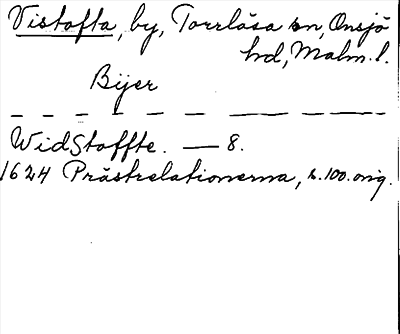 Vistofta, by, Torrlösa sn, Onsjö
hd, Malm. l.
Bijer
WidStoffte. — 8.
1624 Prästrelationerna, s. 100. orig.